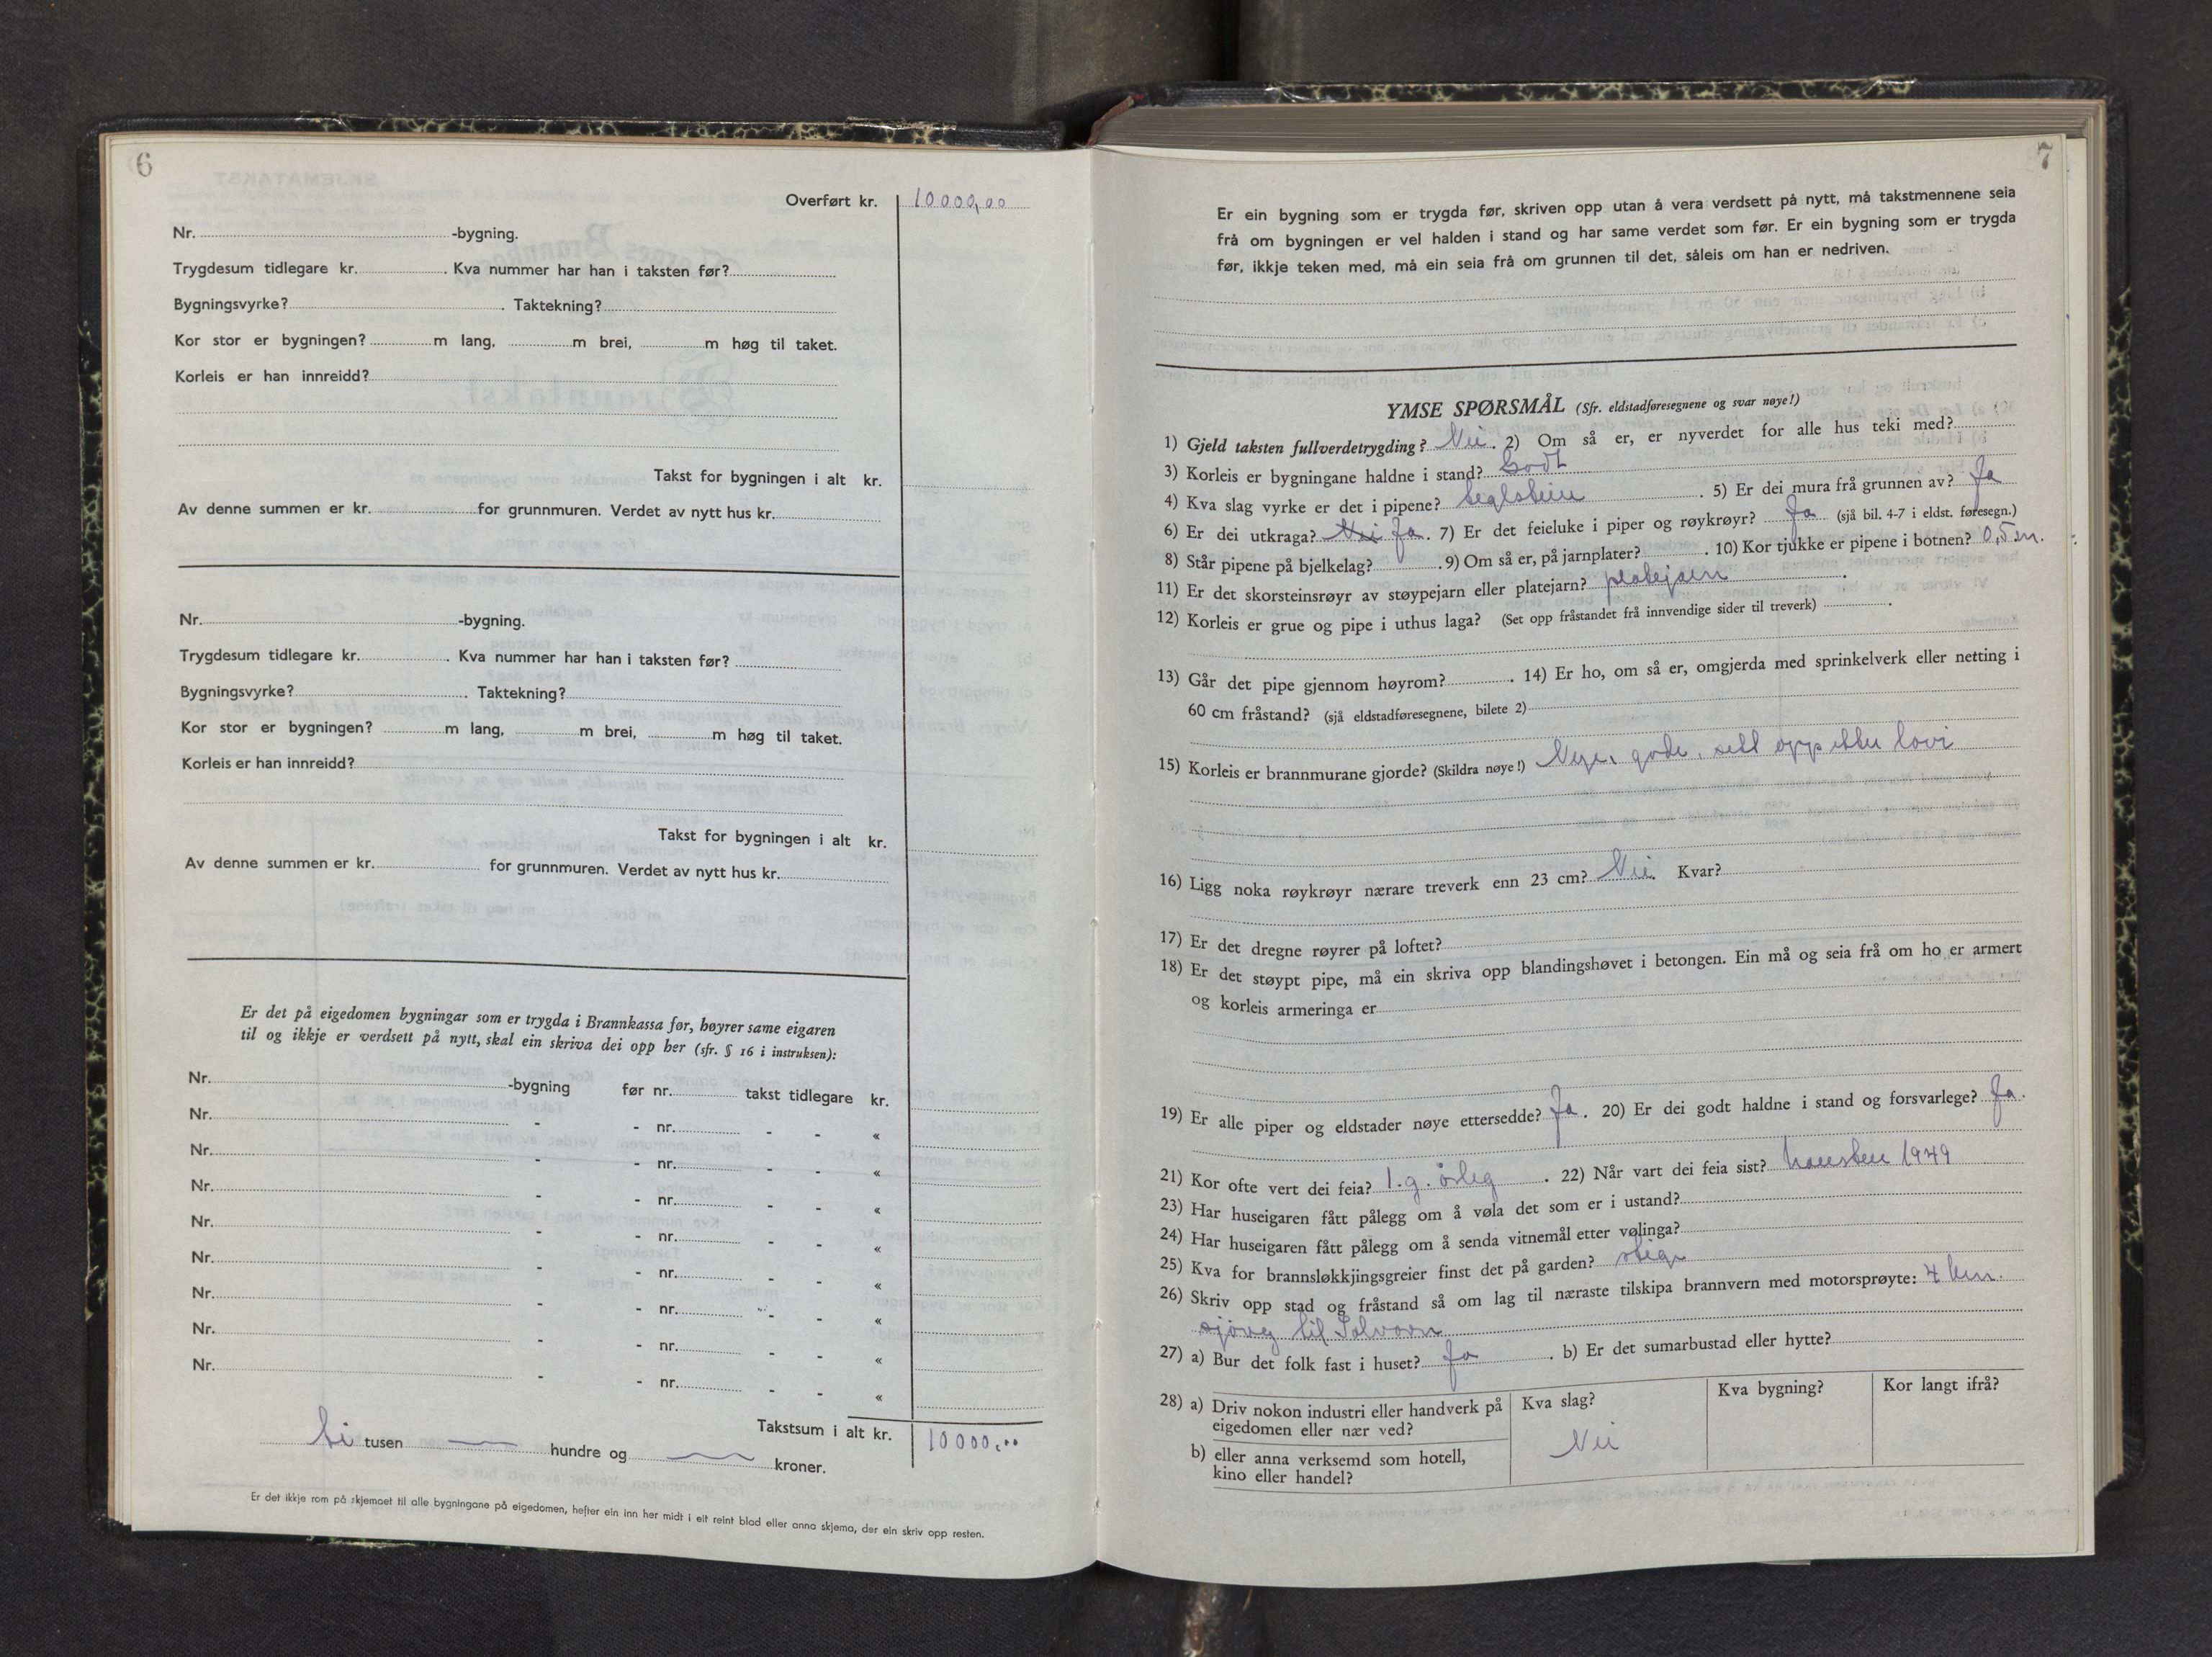 6
Overført kr. 10000,00
Nr. -bygning.
Trygdesum tidlegare kr. . Kva nummer har han i taksten før?
Bygningsvyrke? . Taktekning?
Kor stor er bygningen? m lang, m brei, m høg til taket.
Korleis er han innreidd?
Takst for bygningen i alt kr.
Av denne summen er kr. for grunnmuren. Verdet av nytt hus kr.
Nr. -bygning.
Trygdesum tidlegare kr. . Kva nummer har han i taksten før?
Bygningsvyrke? . Taktekning?
Kor stor er bygningen? m lang, m brei, m høg til taket.
Korleis er han innreidd?
Takst for bygningen i alt kr.
Av denne summen er kr. for grunnmuren. Verdet av nytt hus kr.
Er det på eigedomen bygningar som er trygda i Brannkassa før, høyrer same eigaren
til og ikkje er verdsett på nytt, skal ein skriva dei opp her (sfr. § 16 i instruksen):
Nr. -bygning før nr. takst tidlegare kr.
Nr. - - nr. - - «
Nr. - - nr. - - «
Nr. - - nr. - - «
Nr. - - nr. - - «
Nr. - - nr. - - «
Nr. - - nr. - - «
Nr. - - nr. - - «
Nr. - - nr. - - «
Takstsum i alt kr. 10000,00
ti tusen — hundre og — kroner.
Er det ikkje rom på skjemaet til alle bygningane på eigedomen, hefter ein inn her midt i eit reint blad eller anna skjema, der ein skriv opp resten.
7
Er ein bygning som er trygda før, skriven opp utan å vera verdsett på nytt, må takstmennene seia
frå om bygningen er vel halden i stand og har same verdet som før. Er ein bygning som er trygda
før, ikkje teken med, må ein seia frå om grunnen til det, såleis om han er nedriven.
YMSE SPØRSMÅL (Sfr. eldstadføresegnene og svar nøye!)
1) Gjeld taksten fullverdetrygding? Nei. 2) Om så er, er nyverdet for alle hus teki med?
3) Korleis er bygningane haldne i stand? Godt
4) Kva slag vyrke er det i pipene? teglstein . 5) Er dei mura frå grunnen av? Ja
6) Er dei utkraga? Nei Ja. 7) Er det feieluke i piper og røykrøyr? Ja (sjå bil. 4-7 i eldst. føresegn.)
8) Står pipene på bjelkelag? . 9) Om så er, på jarnplater? . 10) Kor tjukke er pipene i botnen? 0,5 m.
11) Er det skorsteinsrøyr av støypejarn eller platejarn? platejarn .
12) Korleis er grue og pipe i uthus laga? (Set opp fråstandet frå innvendige sider til treverk) .
13) Går det pipe gjennom høyrom? . 14) Er ho, om så er, omgjerda med sprinkelverk eller netting i
60 cm fråstand? (sjå eldstadføresegnene, bilete 2)
15) Korleis er brannmurane gjorde? (Skildra nøye!) Nye, gode, sett opp etter lovi
16) Ligg noka røykrøyr nærare treverk enn 23 cm? Nei. Kvar?
17) Er det dregne røyrer på loftet?
18) Er det støypt pipe, må ein skriva opp blandingshøvet i betongen. Ein må og seia frå om ho er armert
og korleis armeringa er
19) Er alle piper og eldstader nøye ettersedde? Ja. 20) Er dei godt haldne i stand og forsvarlege? Ja.
21) Kor ofte vert dei feia? 1. g. årleg . 22) Når vart dei feia sist? hausten 1949
23) Har huseigaren fått pålegg om å vøla det som er i ustand?
24) Har huseigaren fått pålegg om å senda vitnemål etter vølinga?
25) Kva for brannsløkkjingsgreier finst det på garden? stige
26) Skriv opp stad og fråstand så om lag til næraste tilskipa brannvern med motorsprøyte: 4 km.
sjøveg til Solvorn
27) a) Bur det folk fast i huset? Ja . b) Er det sumarbustad eller hytte?
28) a) Driv nokon industri eller handverk på
eigedomen eller nær ved?
b) eller anna verksemd som hotell,
kino eller handel?
Kva slag?
Nei
Kva bygning?
Kor langt ifrå?